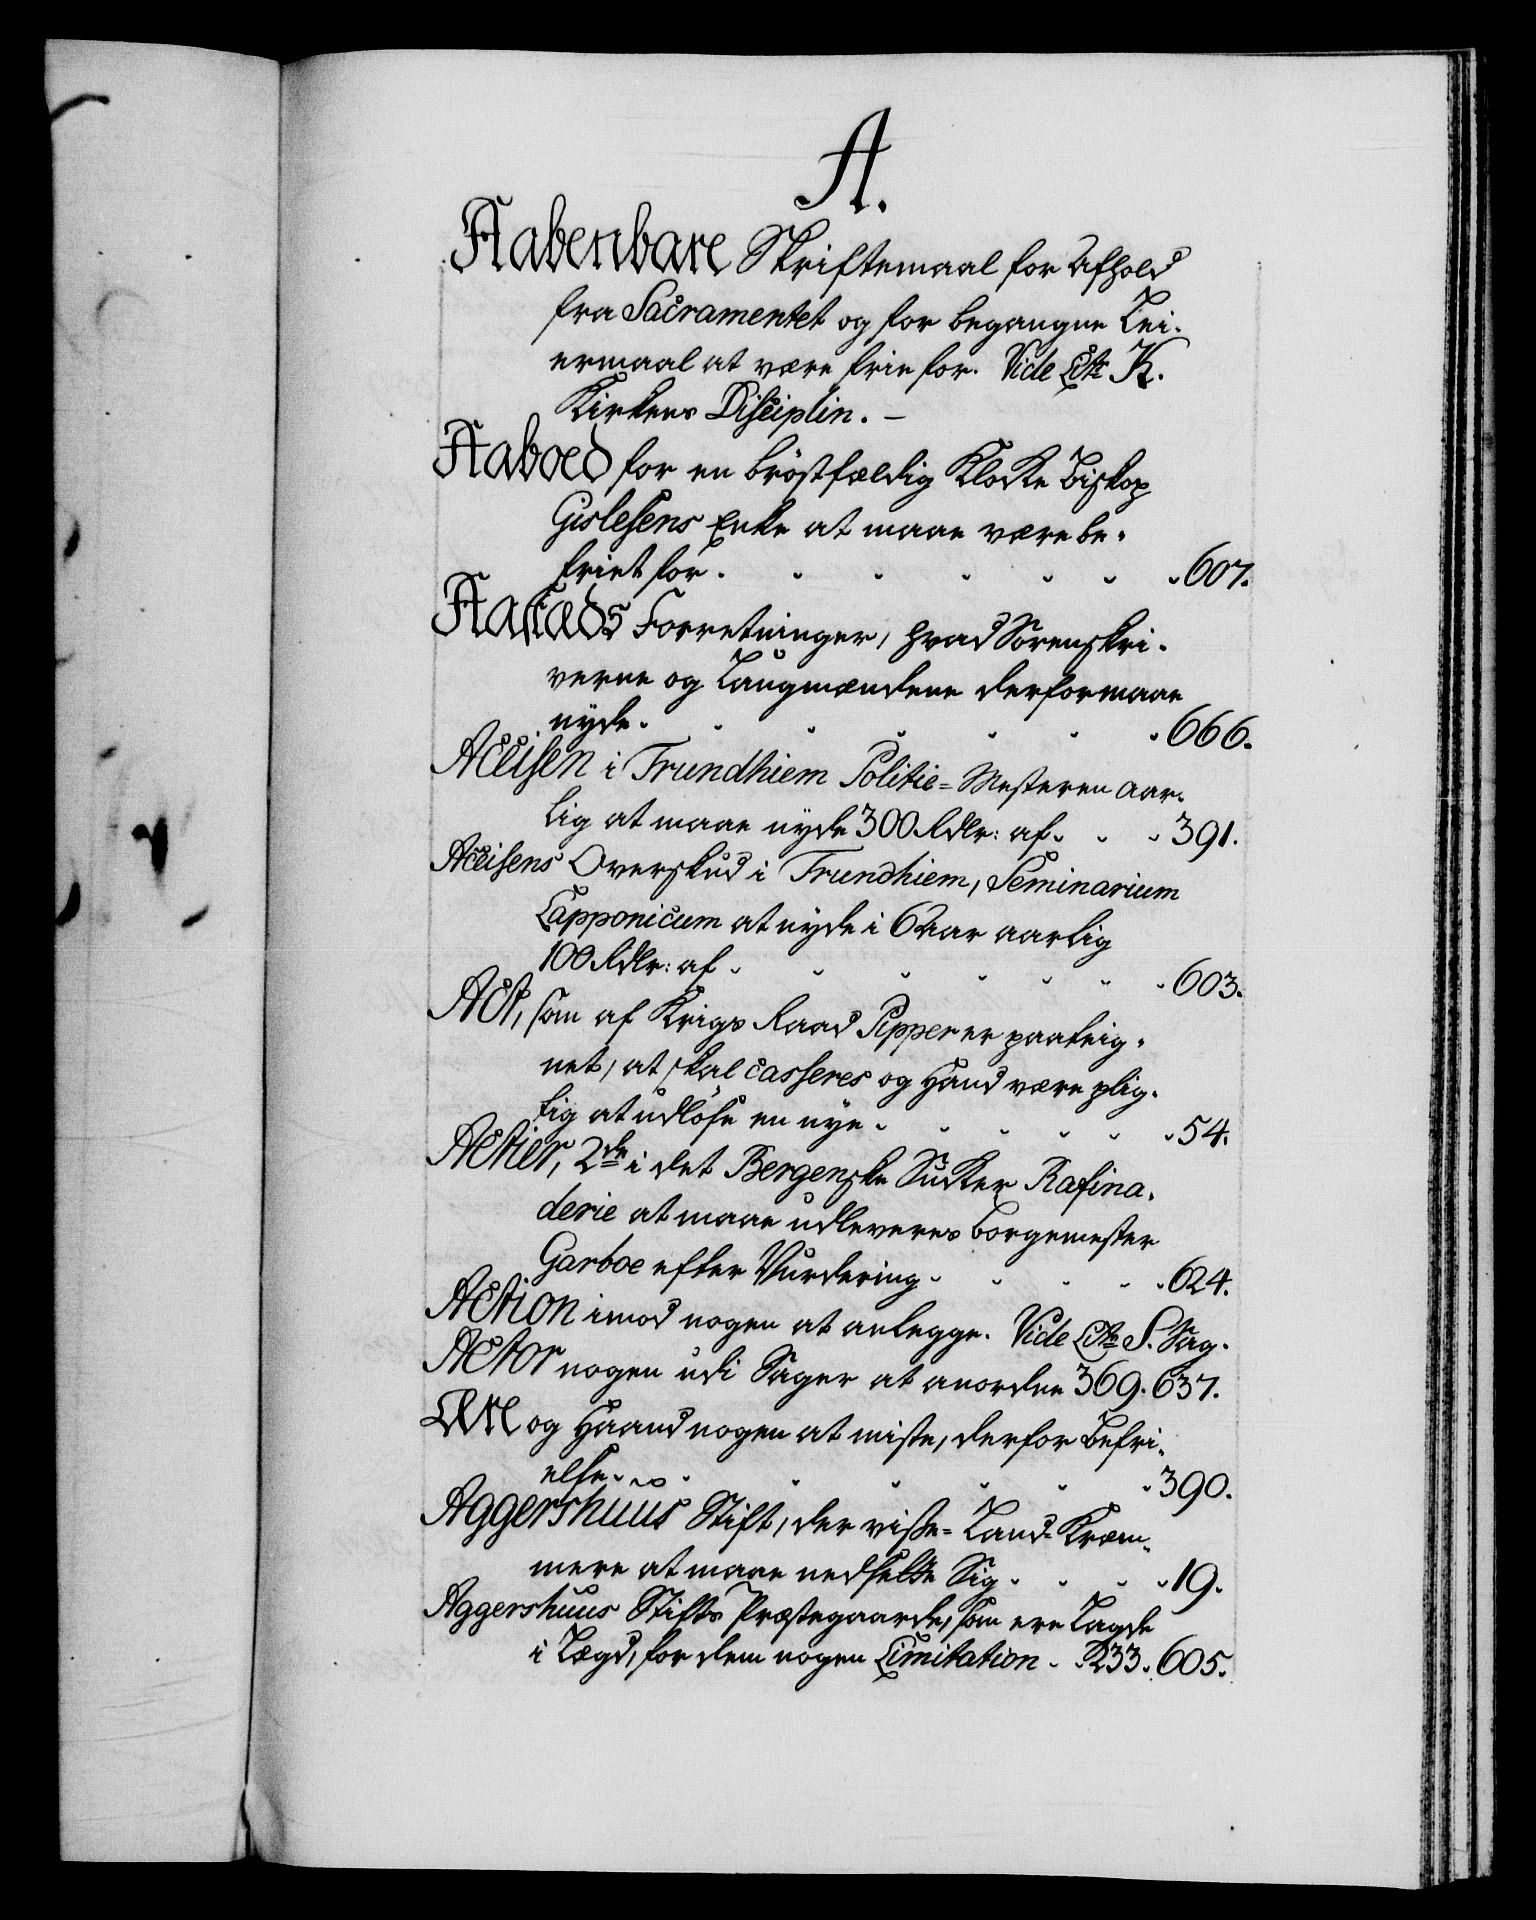 A.
Aabenbare Skriftemaal for Afhold
fra Sacramentet og for begangne Lei-
ermaal at være frie for. Vide Litr: K.
Kirkens Disciplin. -
Aaboed for en bröstfældig Klocke Biskop
Gislesens Enke at maae være be-
friet for. 607.
Aasæds Forretninger, hvad Sorenskri-
verne og Laugmændene derfor maae
nyde. 666.
Accisen i Trundhiem Politie-Mesteren aar-
lig at maae nyde 300 Rdlr: af. 391.
Accisens Overskud i Trundhiem, Seminarium
Lapponicum at nyde i 6 Aar aarlig
100 Rdlr: af. 603.
Act, som af Krigs Raad Pipper er paateig-
net, at skal casseres og Hand være plig-
tig at udlöse en nye. 54.
Actier, 2de i det Bergenske Sucker Rafina-
derie at maae udleveres Borgemester
Garboe efter Vurdering. 624.
Action imod nogen at anlegge. Vide Litr: S. Sag.
Actor nogen udi Sager at anordne 369. 637.
Ære og Haand nogen at miste, derfor Befri-
else. 390.
Aggershuus Stift, der visse-Land-Kræm-
mere at maae nedsette Sig. 19.
Aggershuus Stifts Præstegaarde, som ere Lagde
i Lægd, for dem nogen Limitation. 233. 605.